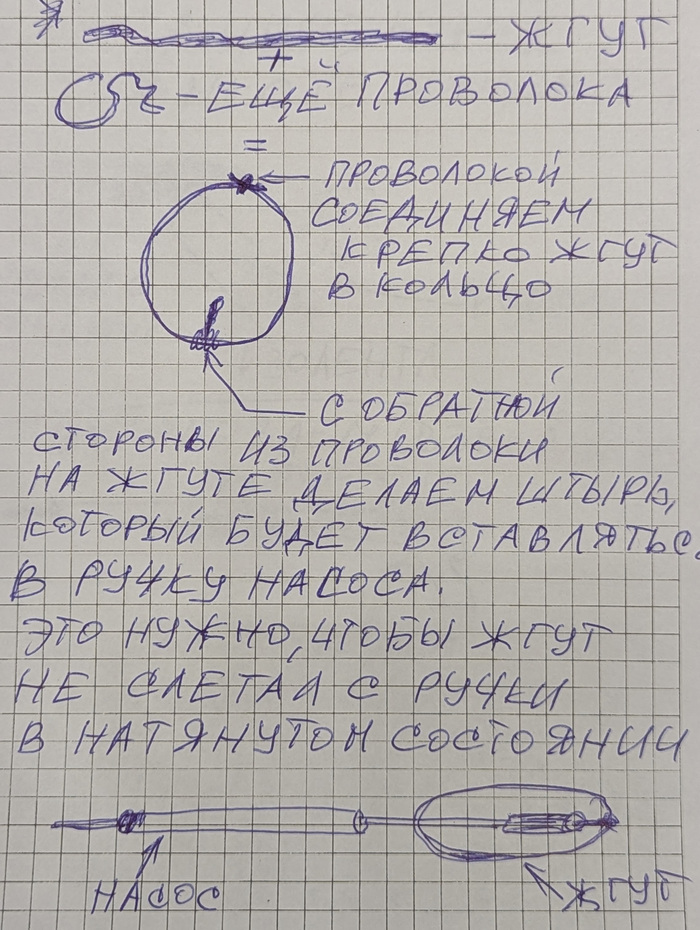 - ЖГУТ
+
- ЕЩЁ ПРОВОЛОКА
=
ПРОВОЛОКОЙ
СОЕДИНЯЕМ
КРЕПКО ЖГУТ
В КОЛЬЦО
С ОБРАТНОЙ
СТОРОНЫ ИЗ ПРОВОЛОКИ
НА ЖГУТЕ ДЕЛАЕМ ШТЫРЬ,
КОТОРЫЙ БУДЕТ ВСТАВЛЯТЬС
В РУЧКУ НАСОСА.
ЭТО НУЖНО, ЧТОБЫ ЖГУТ
НЕ СЛЕТАЛ С РУЧКИ
В НАТЯНУТОМ СОСТОЯНИИ
НАСОС
ЖГУТ